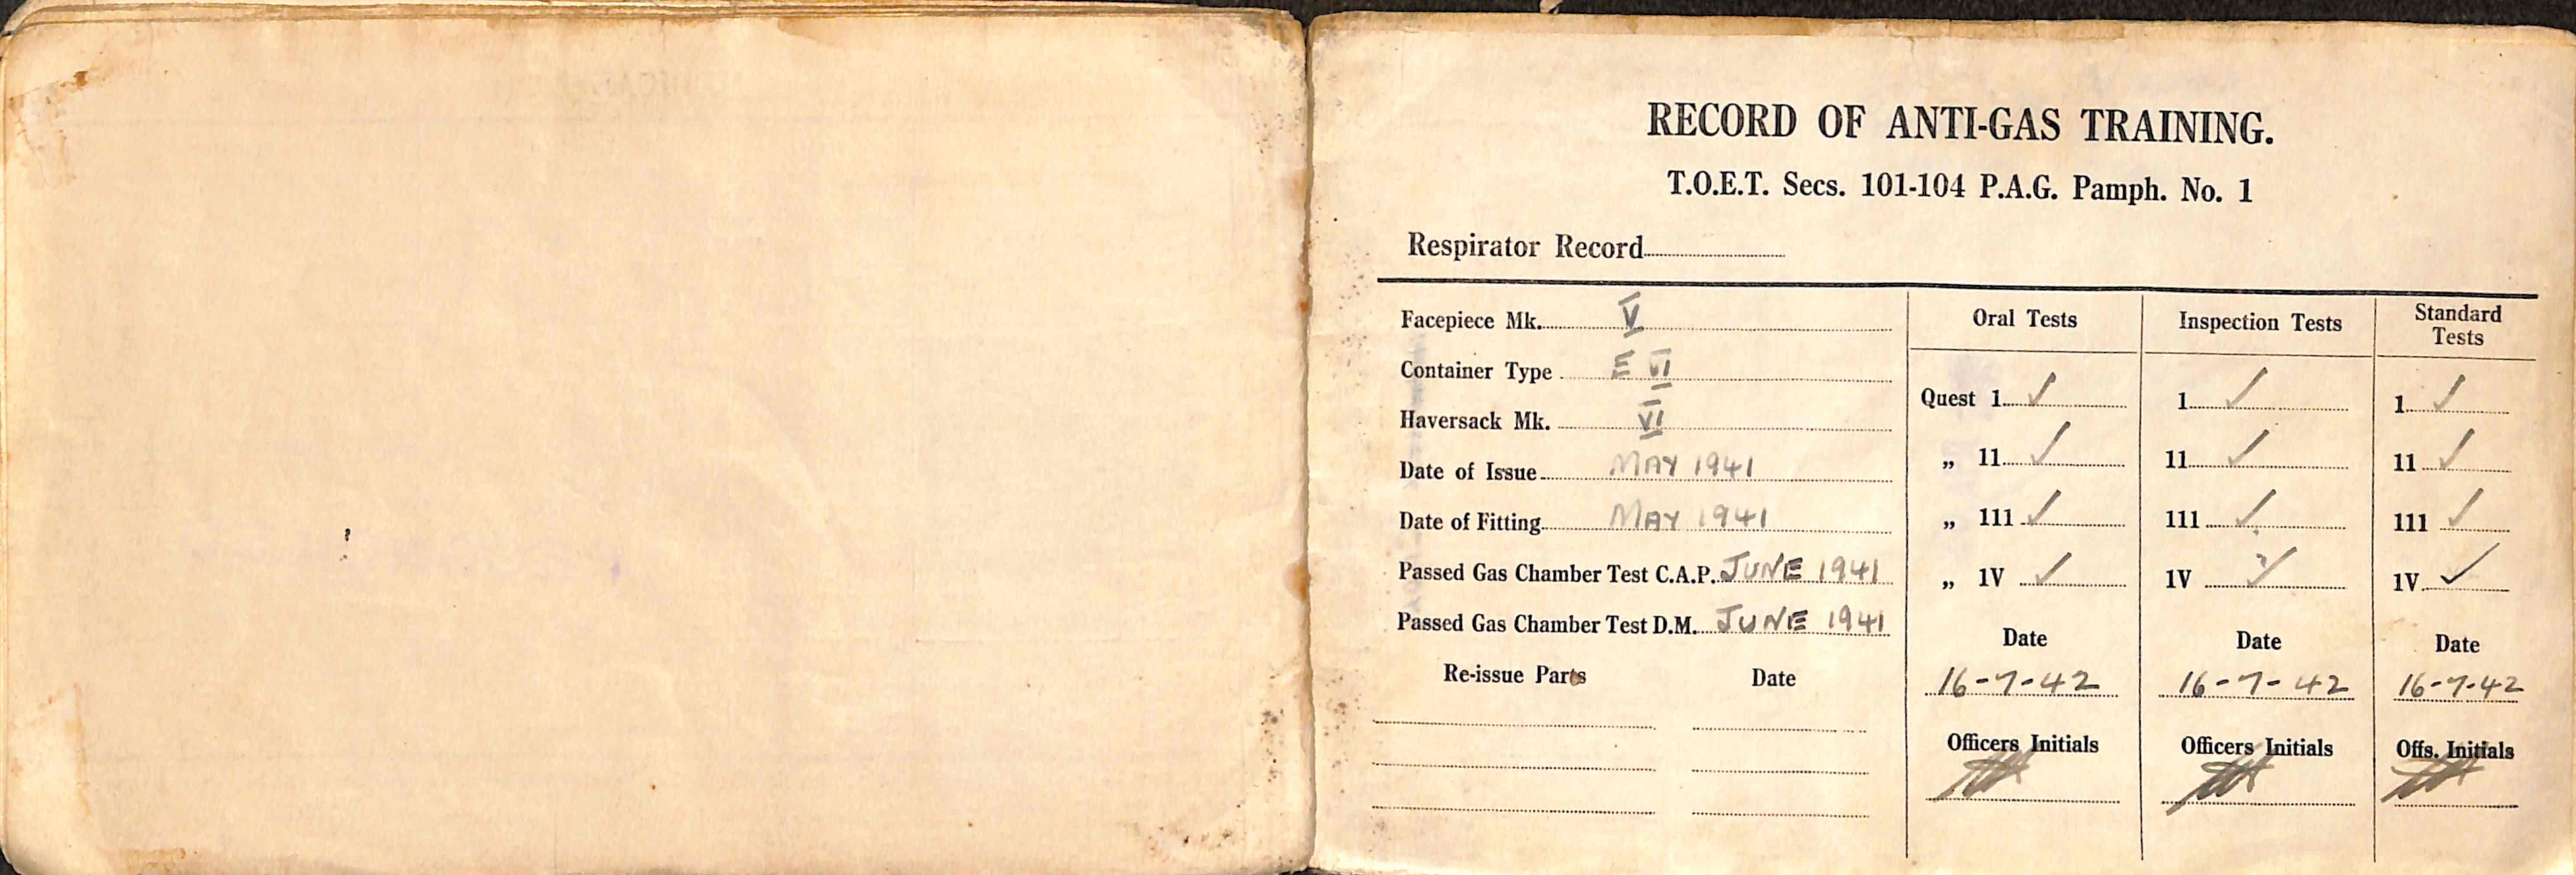 RECORD OF ANTI-GAS TRAINING.
T.O.E.T. Secs. 101-104 P.A.G. Pamph. No. 1
Respirator Record
Facepiece Mk. V
Container Type E VI
Haversack Mk. VI
Date of Issue MAY 1941
Date of Fitting MAY 1941
Passed Gas Chamber Test C.A.P. JUNE 1941
Passed Gas Chamber Test D.M. JUNE 1941
Re-issue Parts Date
Oral Tests
Quest 1 ✓
„ 11 ✓
„ 111 ✓
„ 1V ✓
Date
16-7-42
Officers Initials
Inspection Tests
1 ✓
11 ✓
111 ✓
1V ✓
Date
16-7-42
Officers Initials
Standard
Tests
1 ✓
11 ✓
111 ✓
1V ✓
Date
16-7-42
Offs. Initials